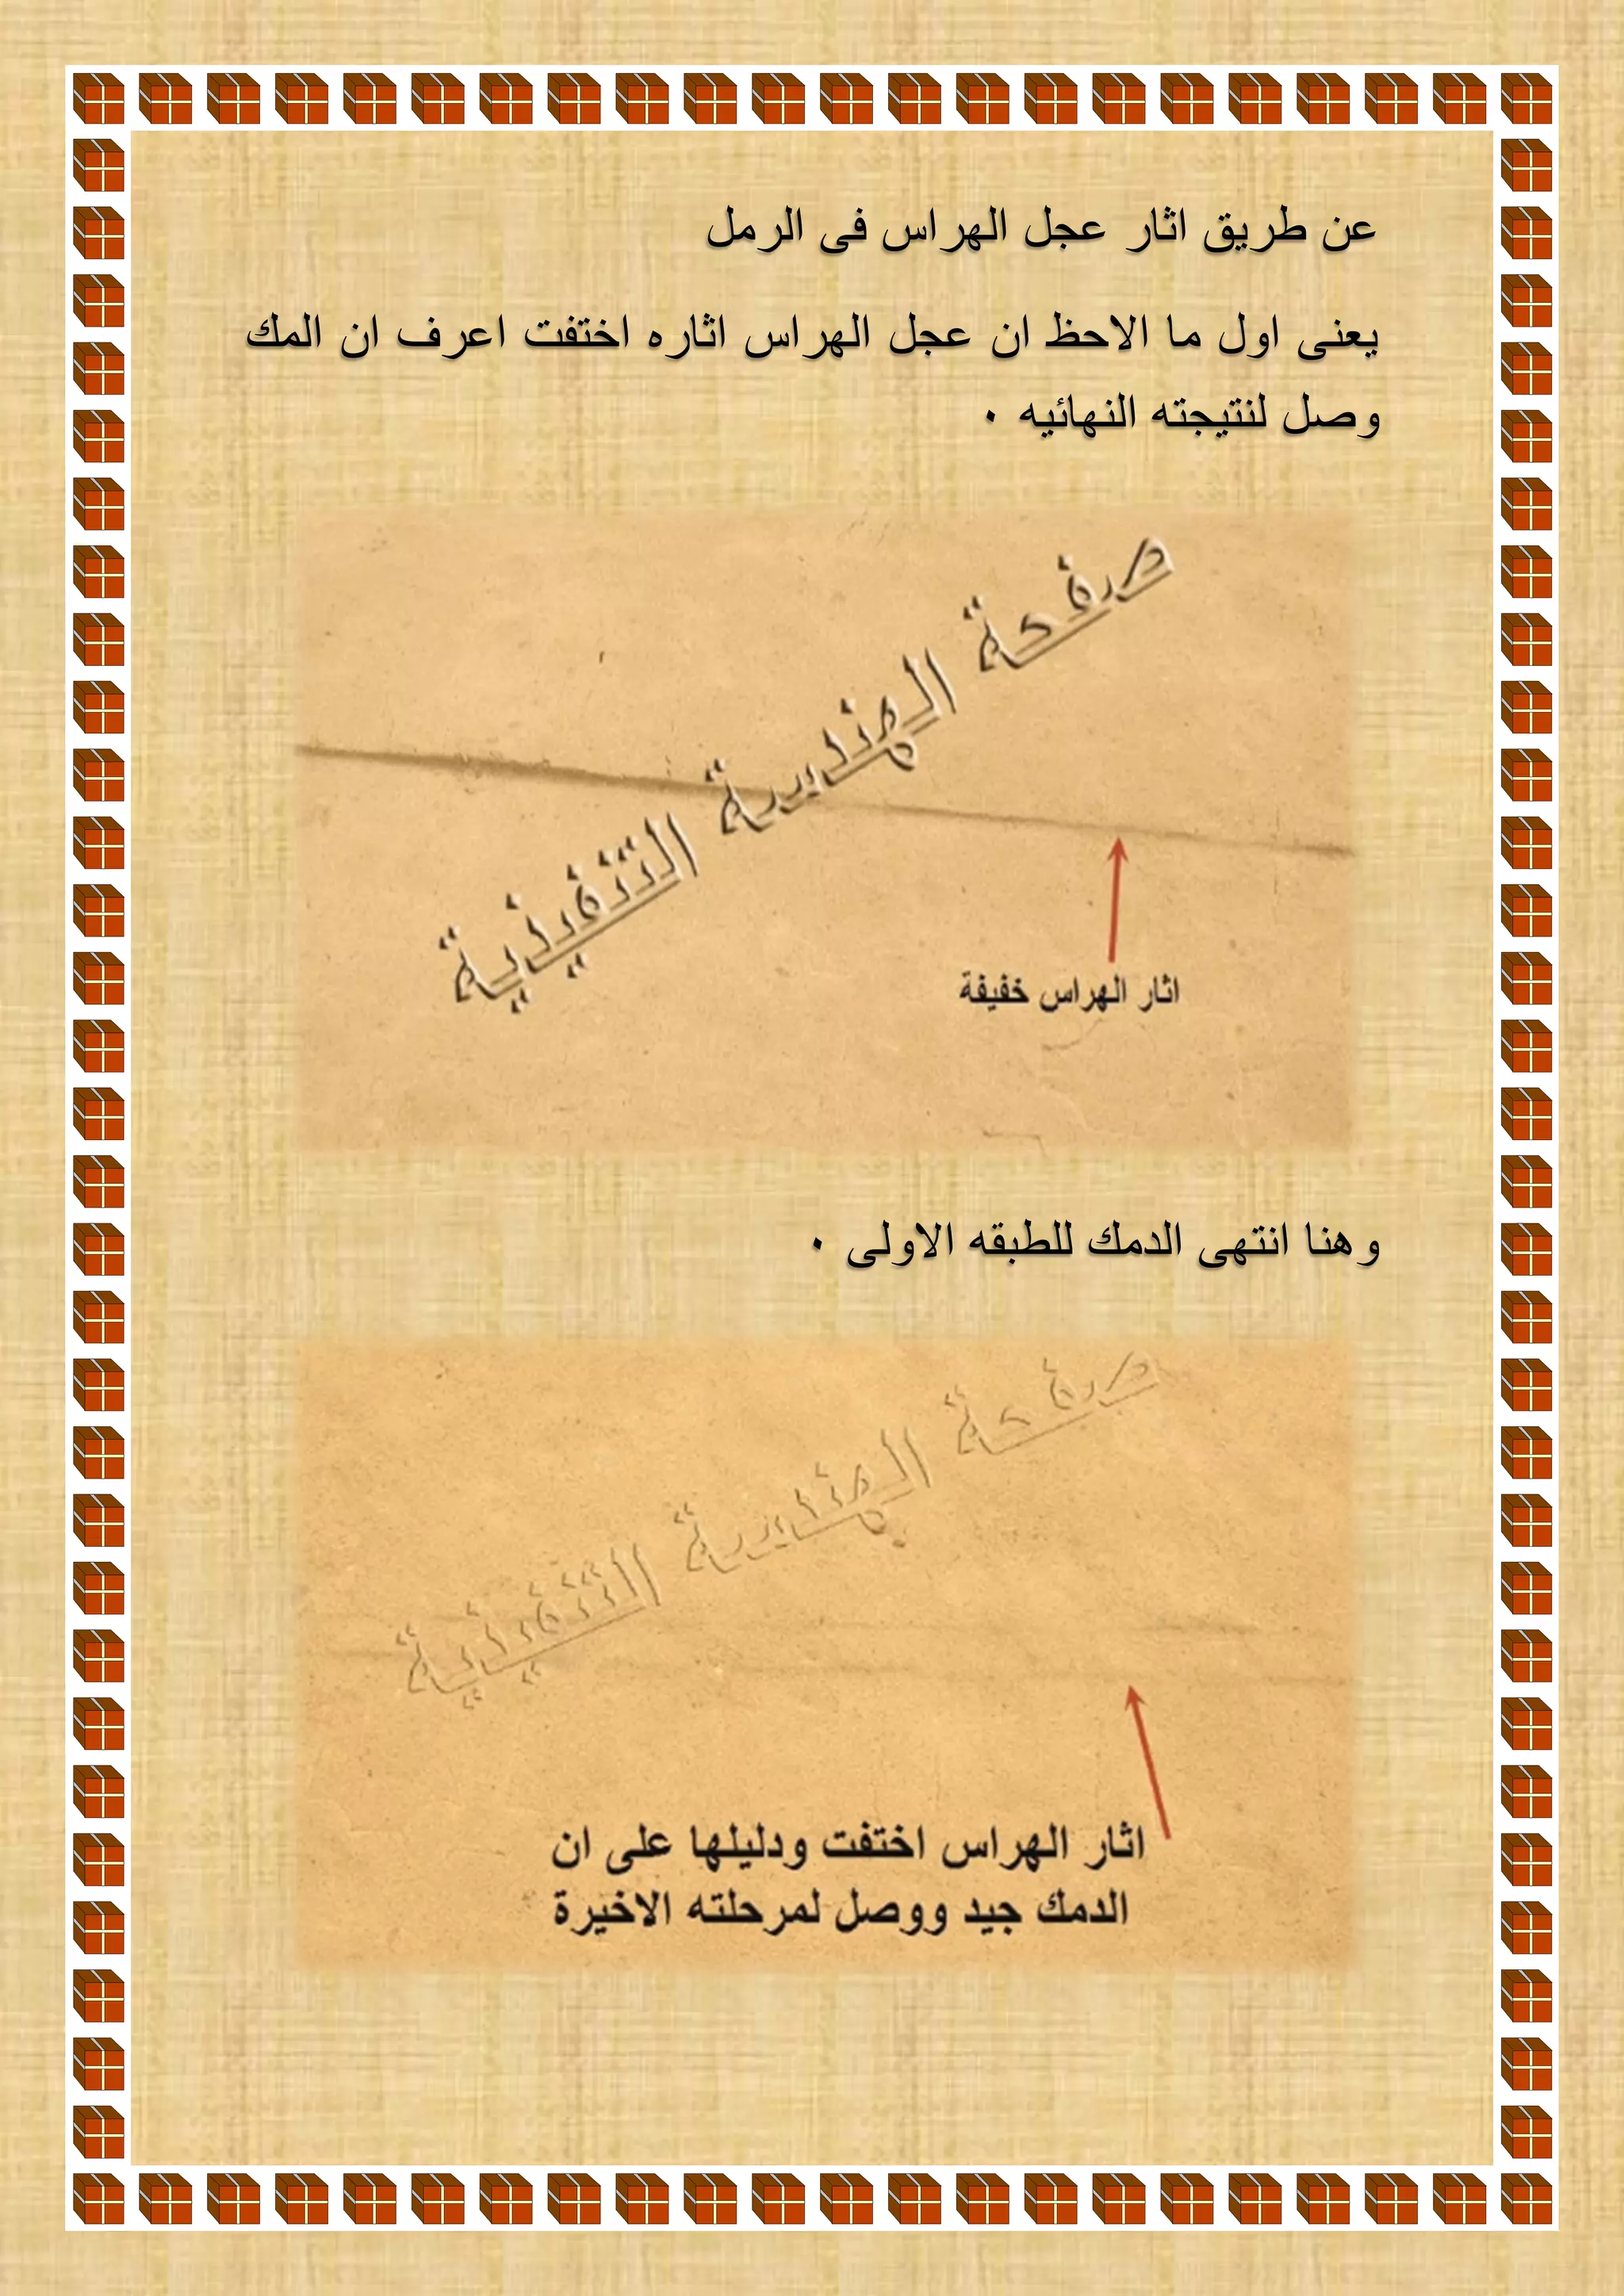 عن طريق اثار عجل الهراس فى الرمل
يعنى اول ما الاحظ ان عجل الهراس اثاره اختفت اعرف ان المك
وصل لنتيجته النهائيه ٠
صفحة الهندسة التنفيذية
اثار الهراس خفيفة
وهنا انتهى الدمك للطبقه الاولى ٠
صفحة الهندسة التنفيذية
اثار الهراس اختفت ودليلها على ان
الدمك جيد ووصل لمرحلته الاخيرة